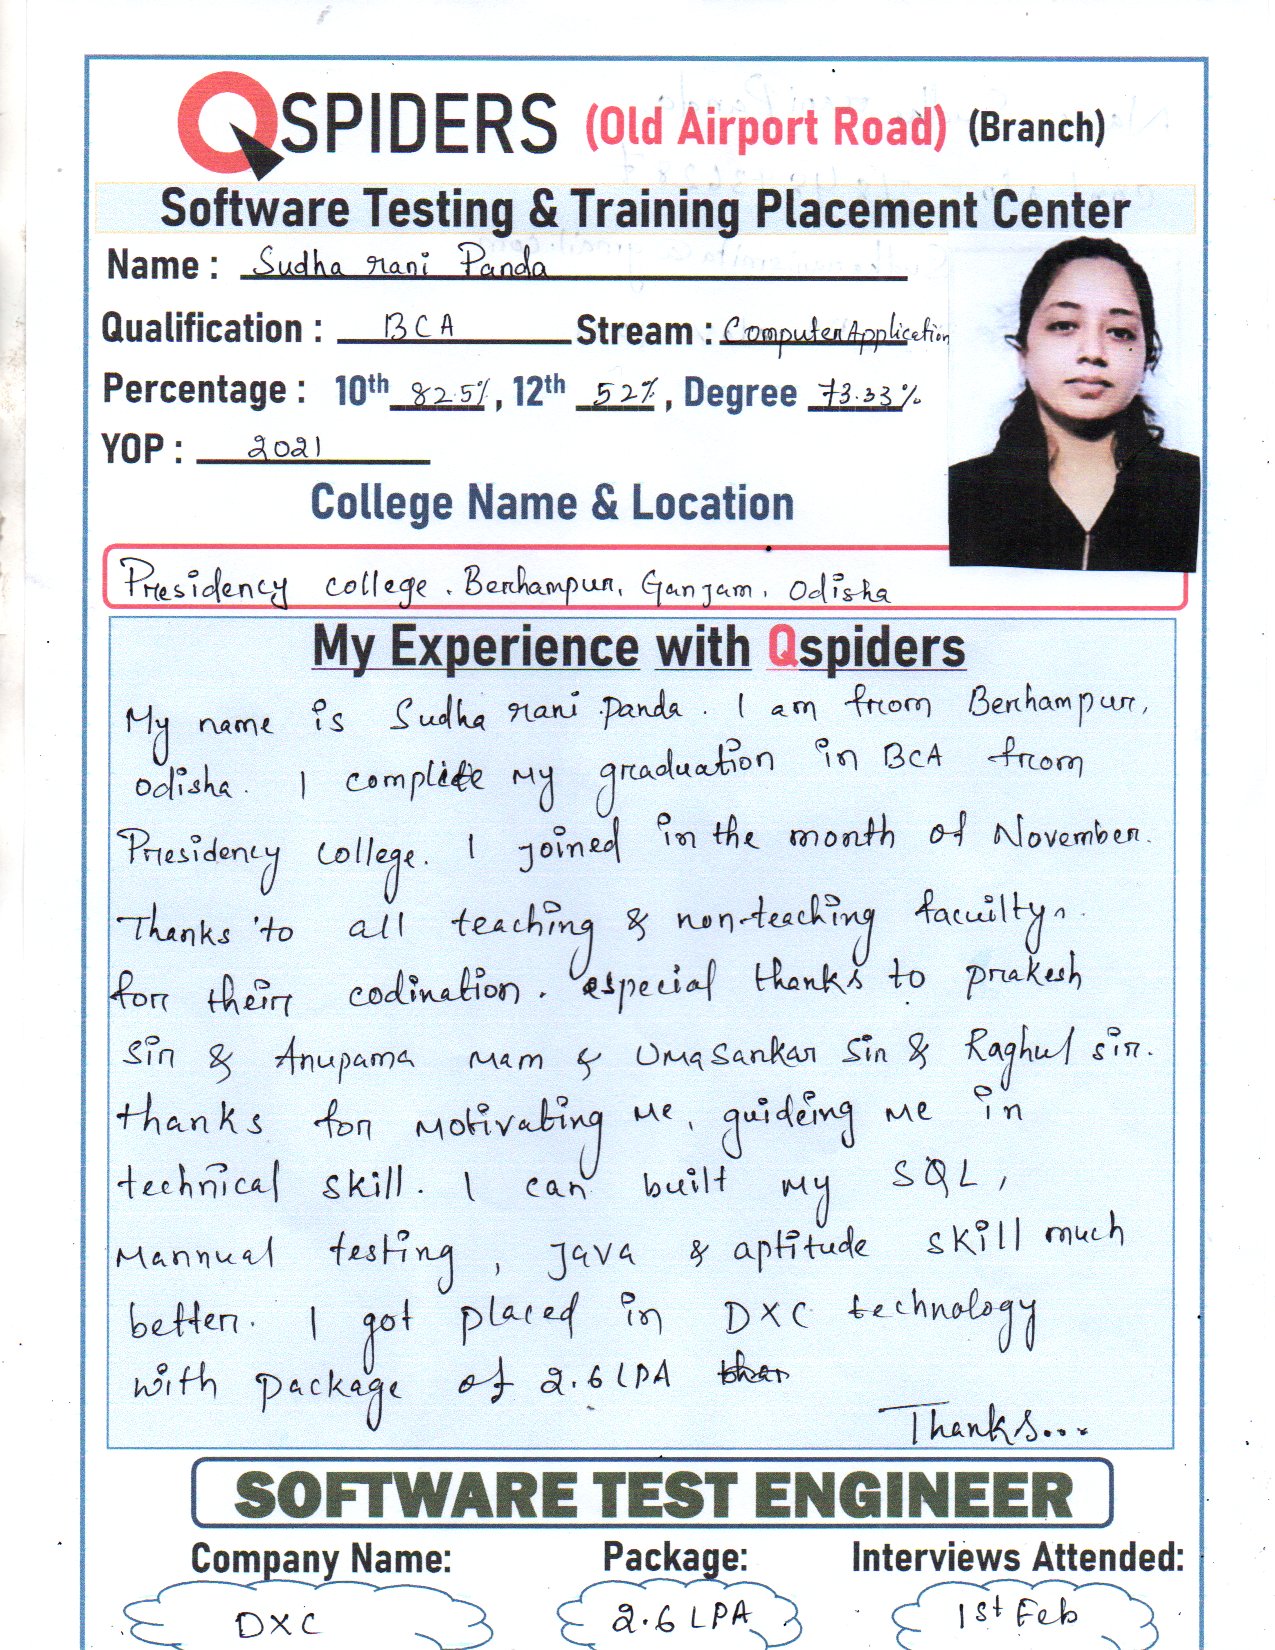 QSPIDERS (Old Airport Road) (Branch)
Software Testing & Training Placement Center
Name : Sudha rani Panda
Qualification : BCA Stream : Computer Application
Percentage : 10th 82.5%, 12th 52%, Degree 73.33%
YOP : 2021
College Name & Location
Presidency college. Berhampur, Ganjam, Odisha
My Experience with Qspiders
My name is Sudha rani panda. I am from Berhampur,
odisha. I complete my graduation in BCA from
Presidency college. I joined in the month of November.
Thanks to all teaching & non-teaching facuilty,
for their codination. especial thanks to prakesh
sir & Anupama mam & Umasankar sir & Raghul sir.
thanks for motivating me, guideing me in
technical skill. I can built my SQL,
Mannual testing, java & aptitude skill much
better. I got placed in DXC technology
with package of 2.6 LPA
Thanks...
SOFTWARE TEST ENGINEER
Company Name: Package: Interviews Attended:
DXC 2.6 LPA 1st Feb